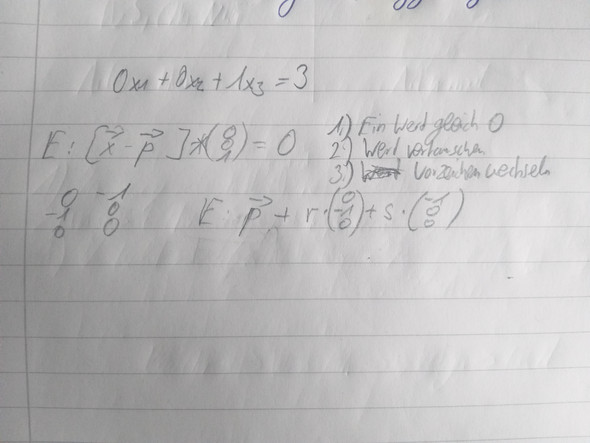 0x1 + 0x2 + 1x3 = 3
E: [x⃗ - p⃗ ] * (0 0 1) = 0
1.) Ein Wert gleich 0
2.) Wert vertauschen
3.) Vorzeichen wechseln
0 -1
-1 0
0 0
E: p⃗ + r · (0 -1 0) + s · (-1 0 0)